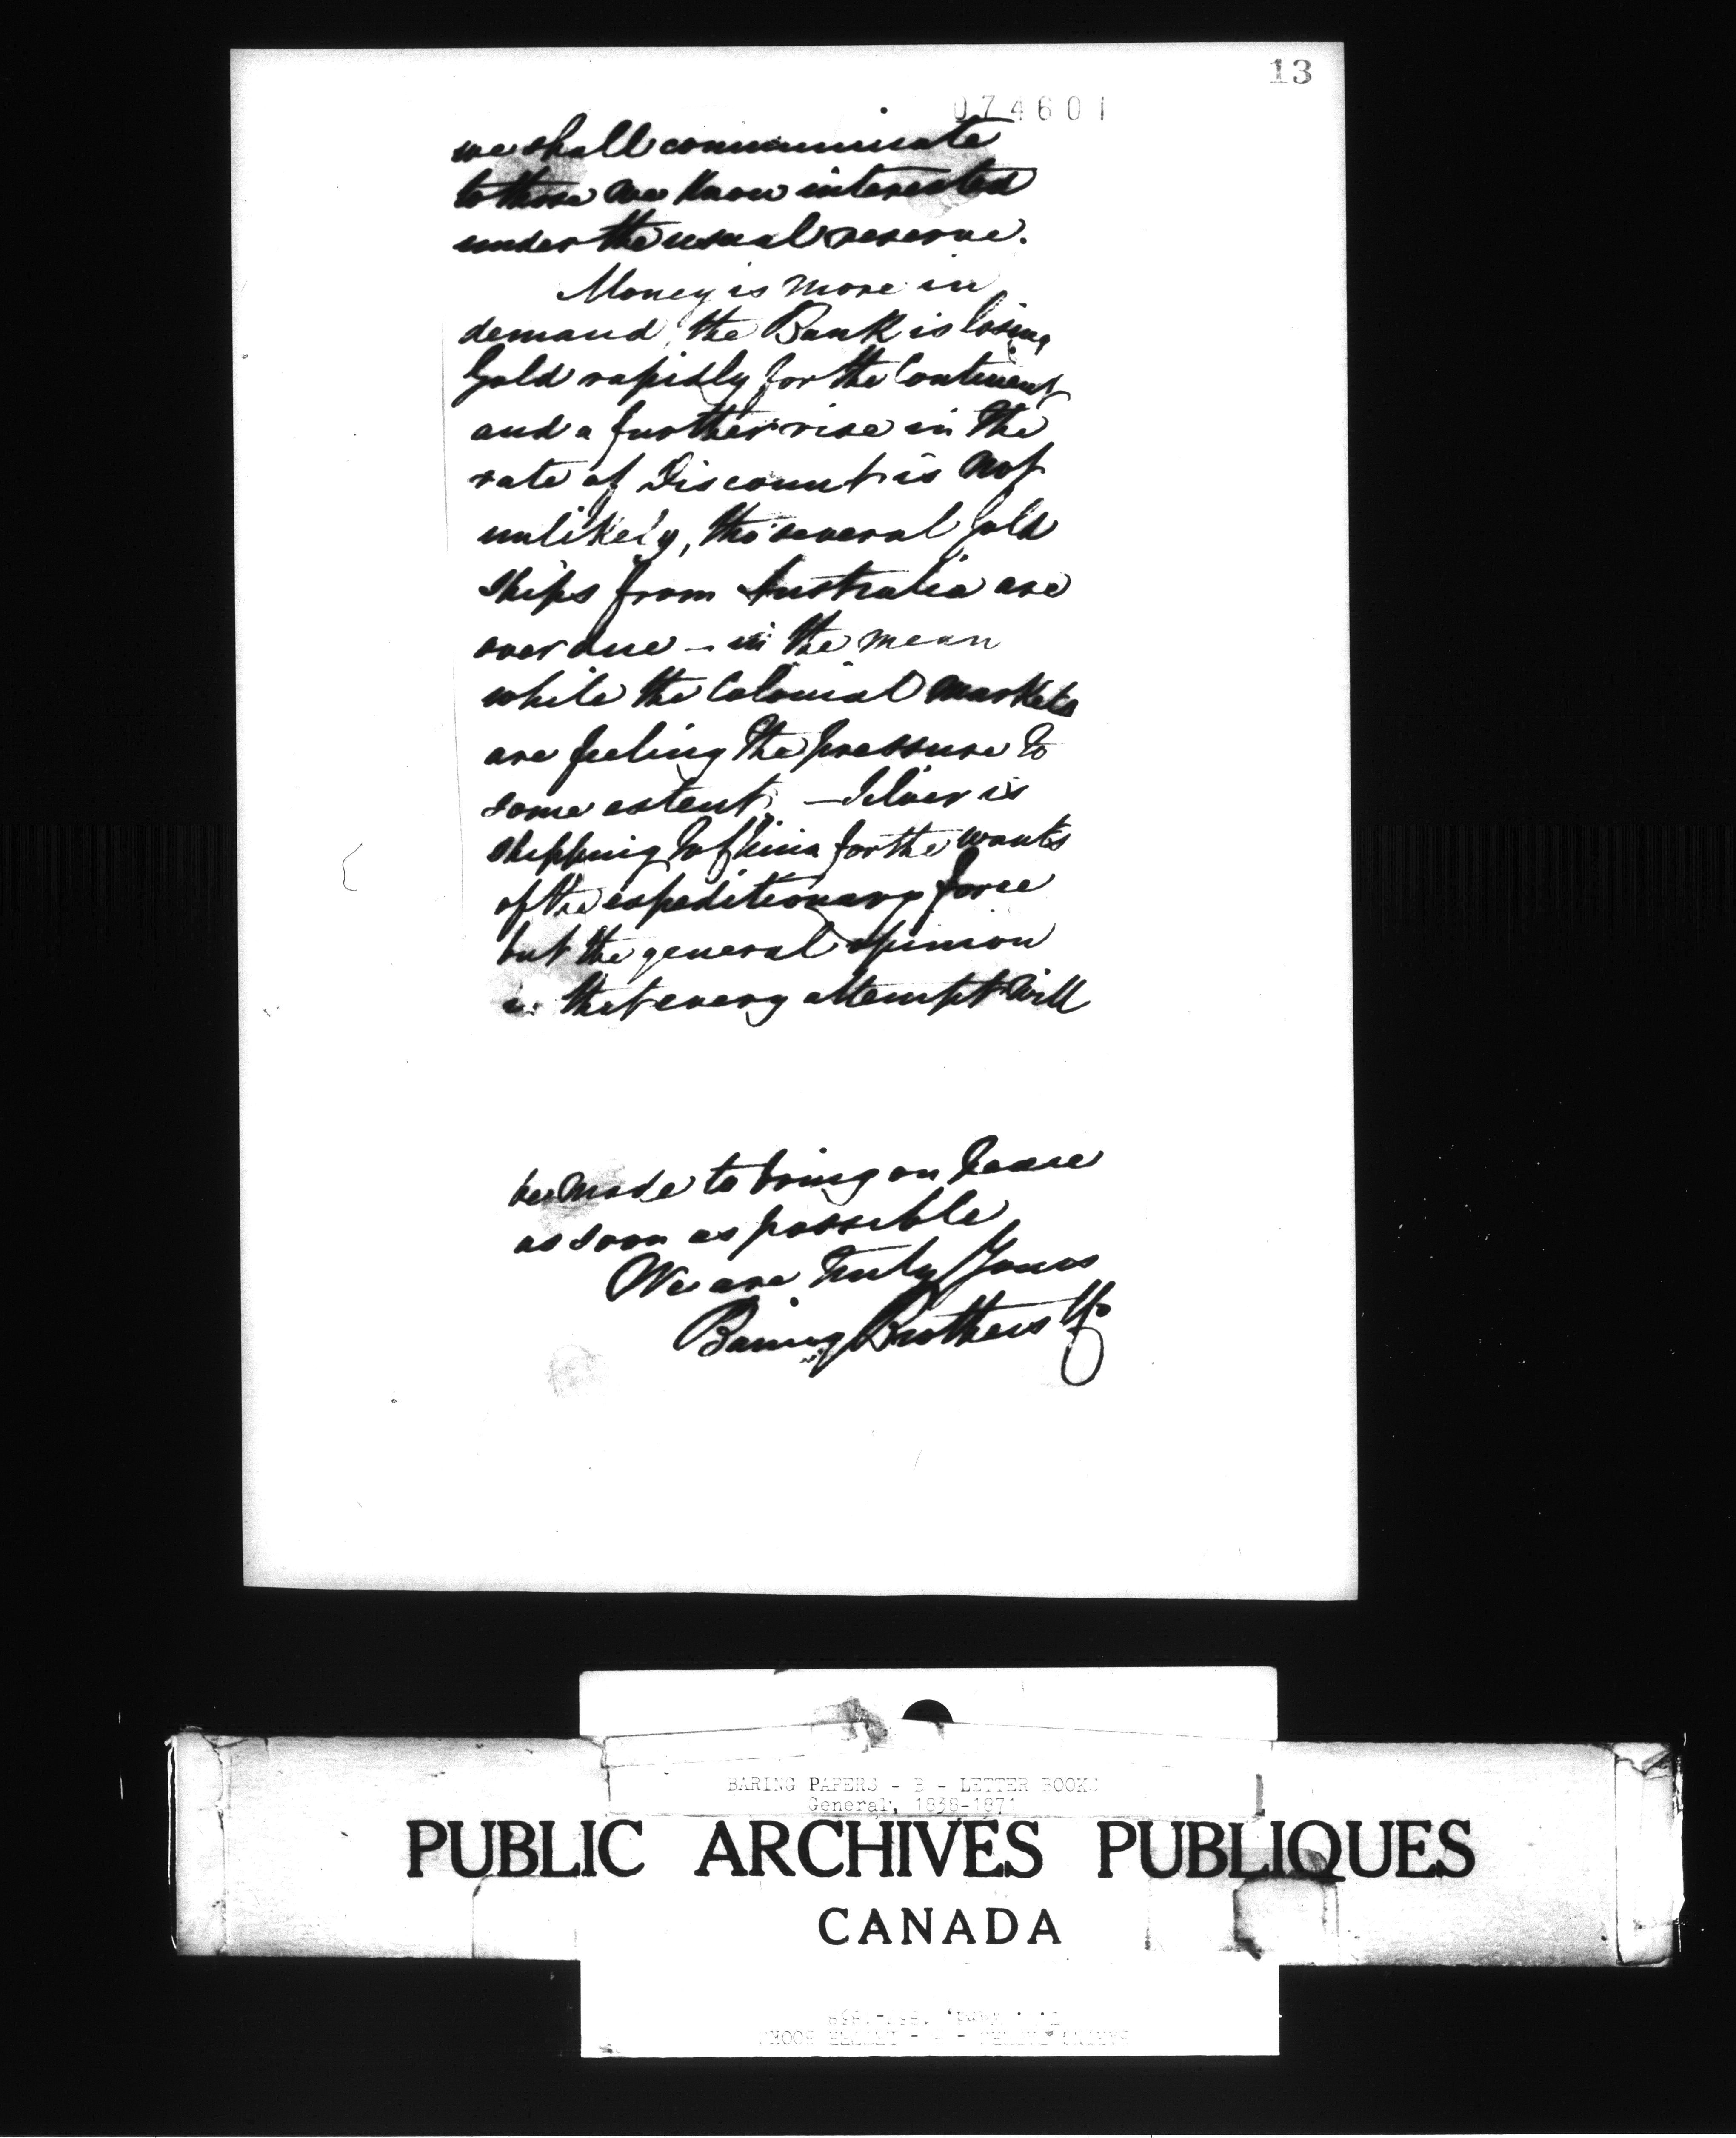 13
074601
we shall communicate
to those we know interested
under the usual reserve.
Money is more in
demand, the Bank is losing
Gold rapidly for the Continent
and a further rise in the
rate of Discount is not
unlikely, tho' several Gold
ships from Australia are
over due – in the mean
while the Colonial Markets
are feeling the pressure to
some extent, – Silver is
shipping to China for the wants
of the expeditionary force
but the general opinion
is that every attempt will
be made to bring on Peace
as soon as possible
We are Truly Yours
Baring Brothers & Co
BARING PAPERS - B - LETTER BOOKS
General, 1838-1871
PUBLIC ARCHIVES PUBLIQUES
CANADA